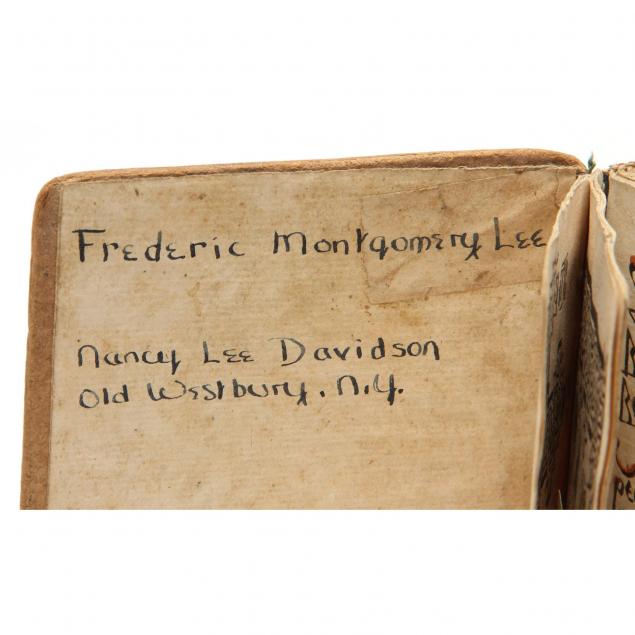 Frederic Montgomery Lee
Nancy Lee Davidson
Old Westbury, N.Y.